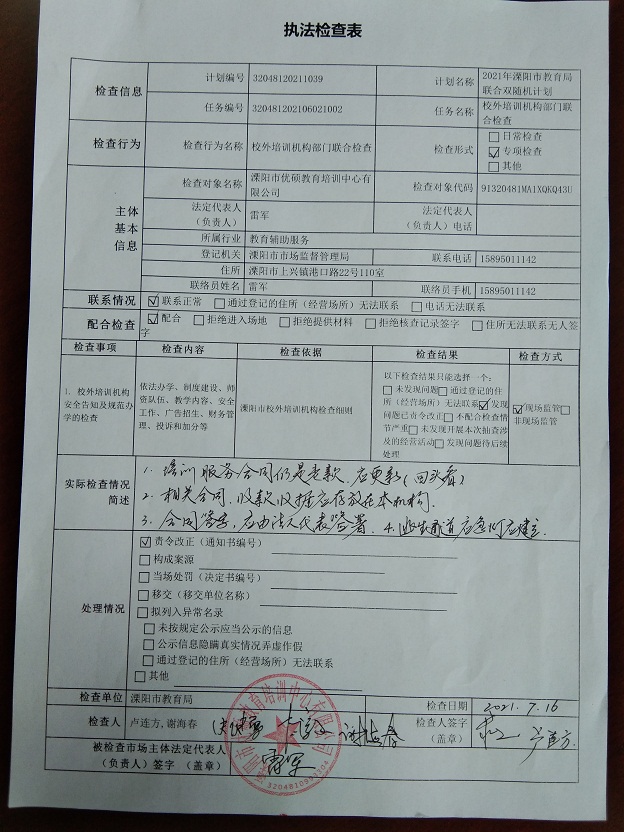 执法检查表
检查信息
计划编号 32048120211039 计划名称 2021年溧阳市教育局联合双随机计划
任务编号 320481202106021002 任务名称 校外培训机构部门联合检查
检查行为 检查行为名称 校外培训机构部门联合检查 检查形式 日常检查
专项检查
其他
主体基本信息
检查对象名称 溧阳市优硕教育培训中心有限公司 检查对象代码 91320481MA1XQKQ43U
法定代表人（负责人） 雷军 法定代表人（负责人）电话
所属行业 教育辅助服务
登记机关 溧阳市市场监督管理局 联系电话 15895011142
住所 溧阳市上兴镇港口路22号110室
联络员姓名 雷军 联络员手机 15895011142
联系情况 联系正常 通过登记的住所（经营场所）无法联系 电话无法联系
配合检查 配合 拒绝进入场地 拒绝提供材料 拒绝核查记录签字 住所无法联系无人签字
检查事项 检查内容 检查依据 检查结果 检查方式
1、校外培训机构安全告知及规范办学的检查
依法办学、制度建设、师资队伍、教学内容、安全工作、广告招生、财务管理、投诉和加分等
溧阳市校外培训机构检查细则
以下检查结果只能选择一个：
未发现问题 通过登记的住所（经营场所）无法联系 发现问题已责令改正 不配合检查情节严重 未发现开展本次抽查涉及的经营活动 发现问题待后续处理
现场监管 非现场监管
实际检查情况简述
1、培训服务合同仍是老款，应更新（回头看）
2、相关合同、收款收据应存放在本机构.
3、合同签字，应由法人代表签署. 4、逃生通道应急灯应建立.
处理情况
责令改正（通知书编号）
构成案源
当场处罚（决定书编号）
移交（移交单位名称）
拟列入异常名录
未按规定公示应当公示的信息
公示信息隐瞒真实情况弄虚作假
通过登记的住所（经营场所）无法联系
其他
检查单位 溧阳市教育局 检查日期 2021.7.16
检查人 卢连方，谢海春 谢海春 检查人签字（盖章） 卢连方
被检查市场主体法定代表人（负责人）签字（盖章） 雷军